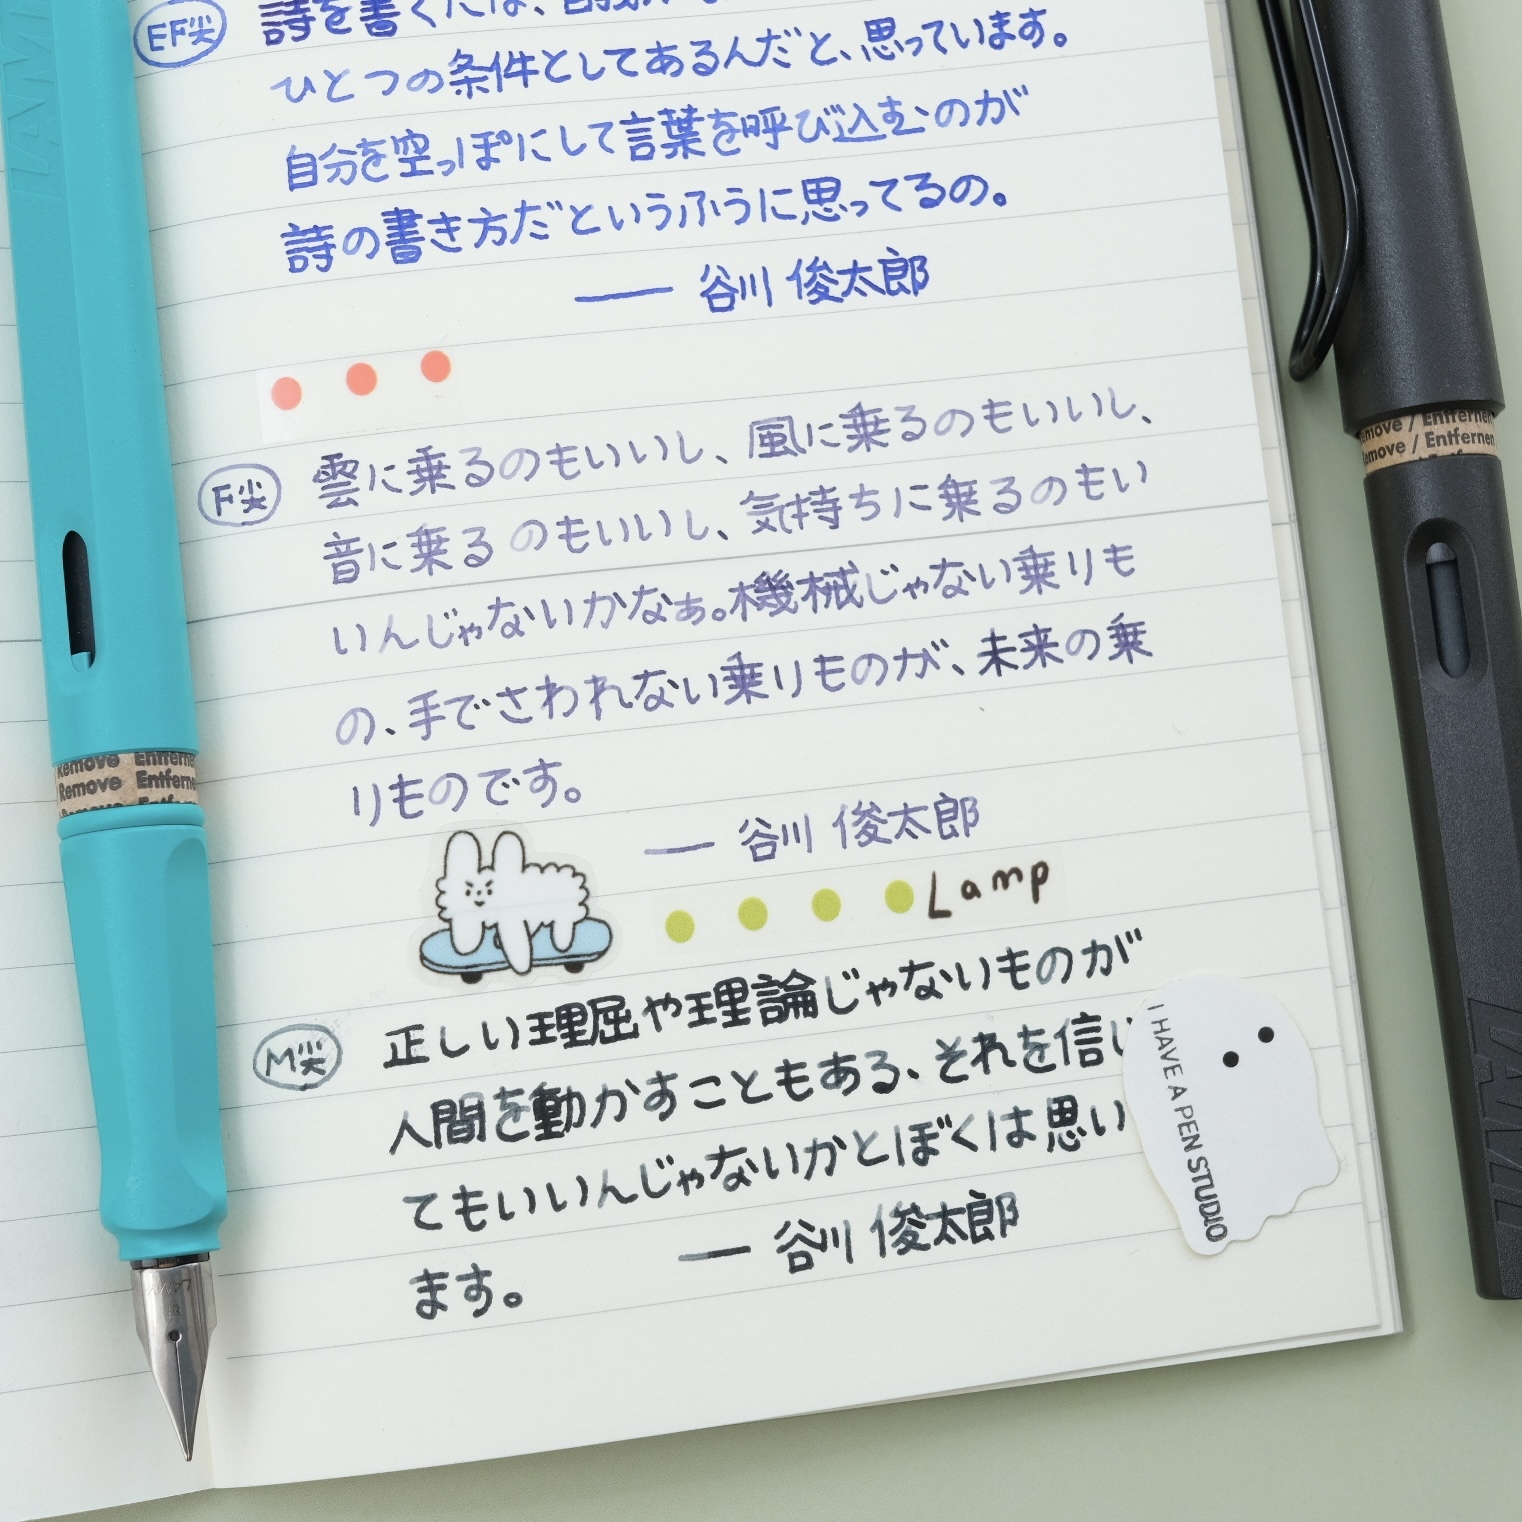 EF尖
詩を書くには、自分が
ひとつの条件としてあるんだと、思っています。
自分を空っぽにして言葉を呼び込むのが
詩の書き方だというふうに思ってるの。
── 谷川 俊太郎
F尖
雲に乗るのもいいし、風に乗るのもいいし、
音に乗るのもいいし、気持ちに乗るのもい
いんじゃないかなぁ。機械じゃない乗りも
の、手でさわれない乗りものが、未来の乗
りものです。
── 谷川 俊太郎
Lamp
M尖
正しい理屈や理論じゃないものが
人間を動かすこともある、それを信じ
てもいいんじゃないかとぼくは思い
ます。
── 谷川 俊太郎
I HAVE A PEN STUDIO
LAMY
Remove Entfernen
Remove Entfernen
Remove / Entfernen
Remove / Entfernen
LAMY